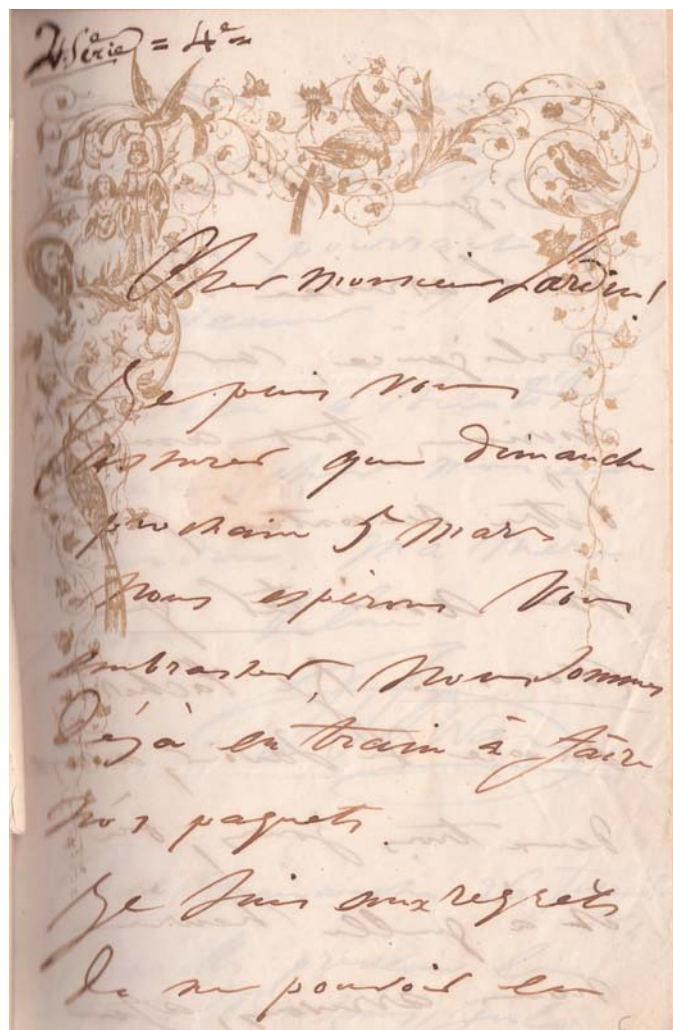 2e Série = 4e =
Cher monsieur Jardin!
Je puis vous
assurer que dimanche
prochain 5 mars
nous espérons vous
embrasser, nous sommes
Déjà en train à faire
nos paquets.
Je suis aux regrets
de ne pouvoir en